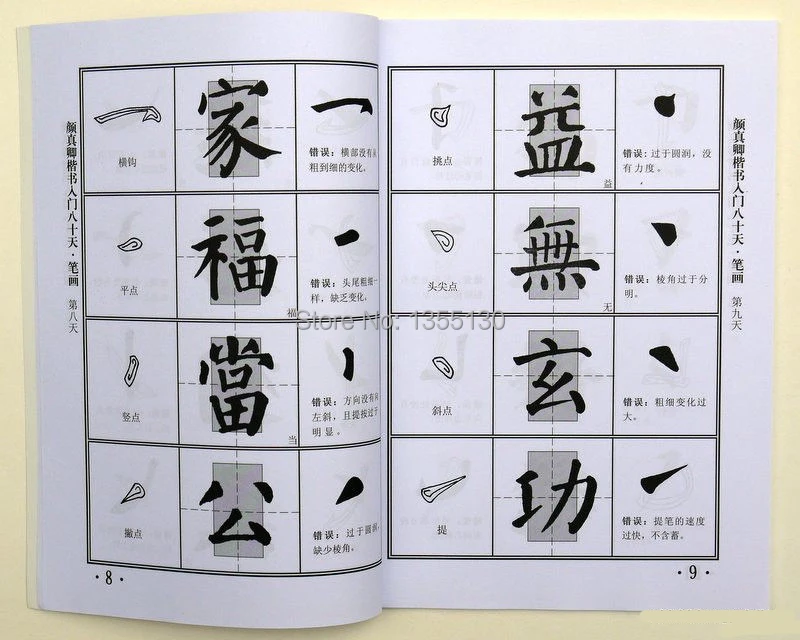 颜真卿楷书入门八十天·笔画 第八天
横钩
家
错误：横部没有从
粗到细的变化。
平点
福
福
错误：头尾粗细一
样，缺乏变化。
竖点
當
当
错误：方向没有向
左斜，且提按过于
明显。
撇点
公
错误：过于圆润，
缺少棱角。
·8·
挑点
益
益
错误：过于圆润，没
有力度。
头尖点
無
无
错误：棱角过于分
明。
斜点
玄
错误：粗细变化过
大。
提
功
错误：提笔的速度
过快，不含蓄。
颜真卿楷书入门八十天·笔画 第九天
·9·
Store No: 1355130